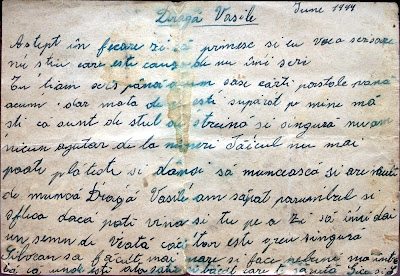 Dragă Vasile
June 1944
Astept în fiecare zi să primesc si eu vreo scrisoare
nu stiu care este cauza de nu îmi scri
Eu tiam scris până acum sase cărti postole pană
acum si dar mata de ce esti supărat pe mine mă
sti că sunt de stul de streină si singură nu am
nicun ajutor de la nimeri Tăicul nu mai
poate plăteste si dânsu sa muncească si are
de muncă Dragă Vasile am săpat porumbul si
sfica daca poti vina si tu pe o zi să îmi dai
un semn de Viată căci tor este greu singura
sa făcut mai mare si face nebuni mă
că unde esti